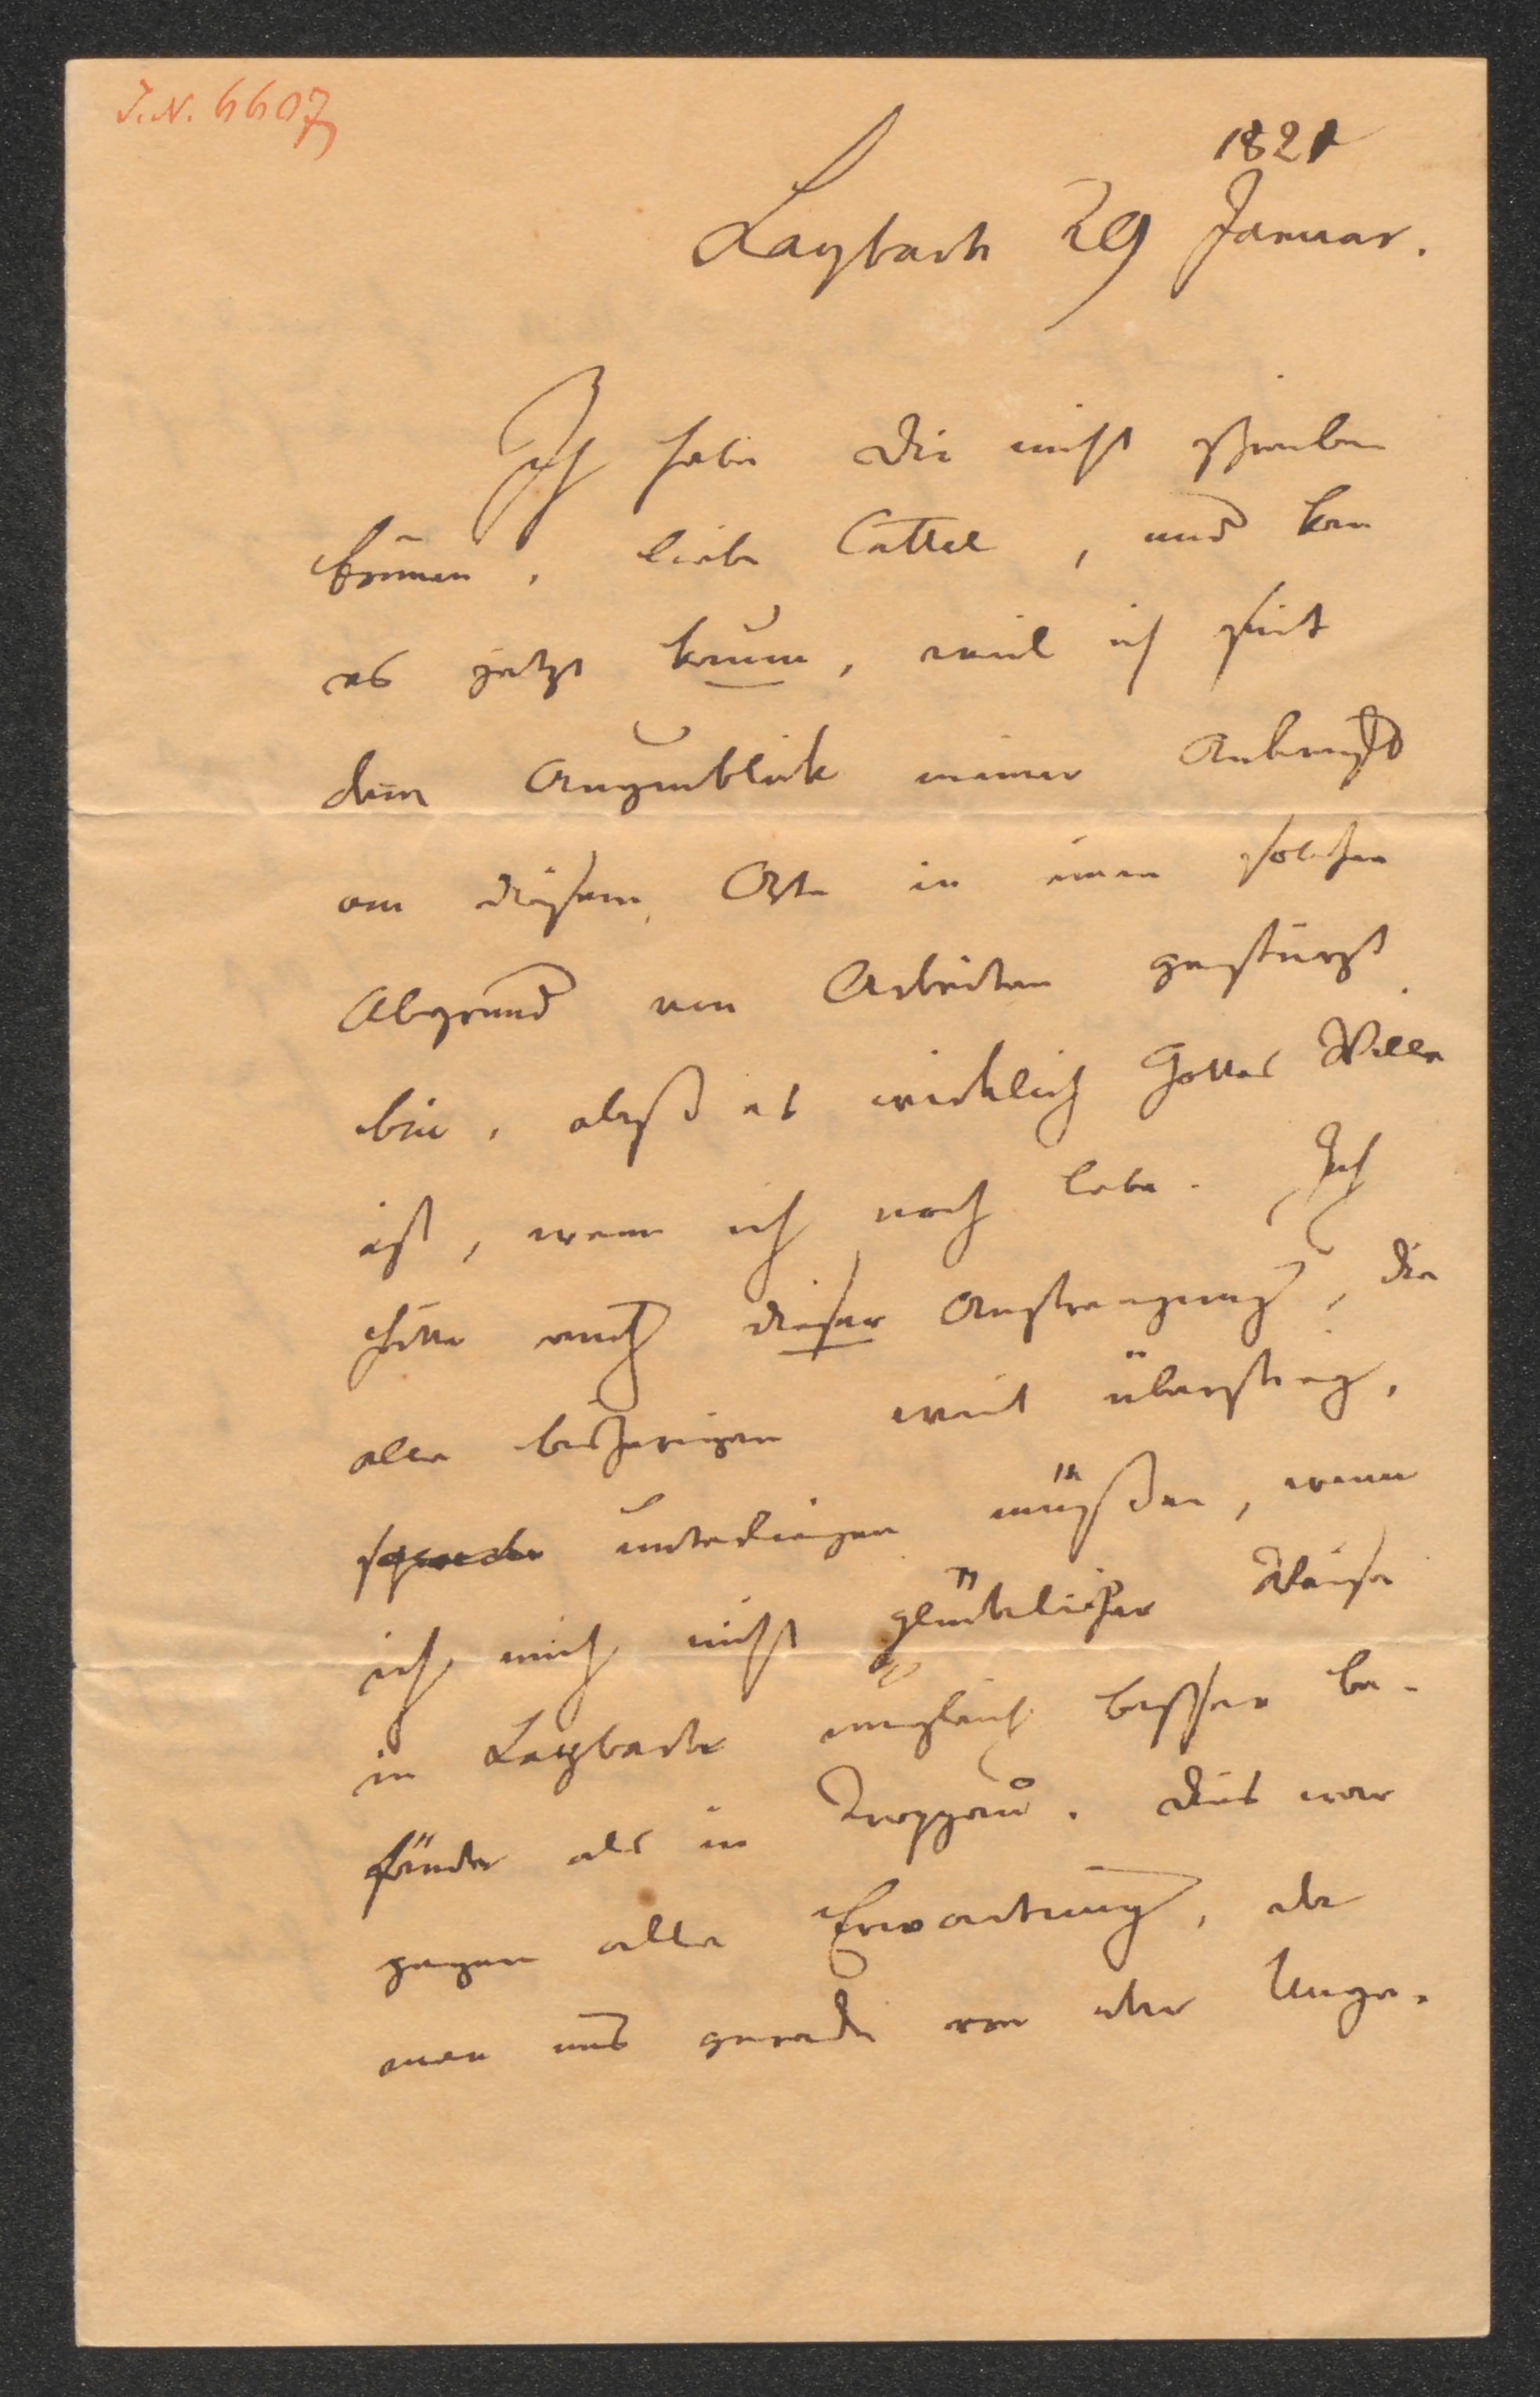 J.N. 6607
1821
Laybach 29 Januar.
Ich habe Dir nicht schreiben
können, liebe Cattel, und kan
es jetzt kaum, weil ich seit
dem Augenblick meiner Ankunft
an diesem Orte in einen solchen
Abgrund von Arbeiten gestürzt
bin, daß es wirklich Gottes Wille
ist, wenn ich noch lebe. Ich
hätte auch dieser Anstrengung, die
alle bisherigen weit überstieg,
unterliegen müßen, wenn
ich mich nicht glücklicher Weise
in Laybach ungleich besser be-
fände als in Troppau. Dies war
gegen alle Erwartung, da
man uns gerade von der Unge-